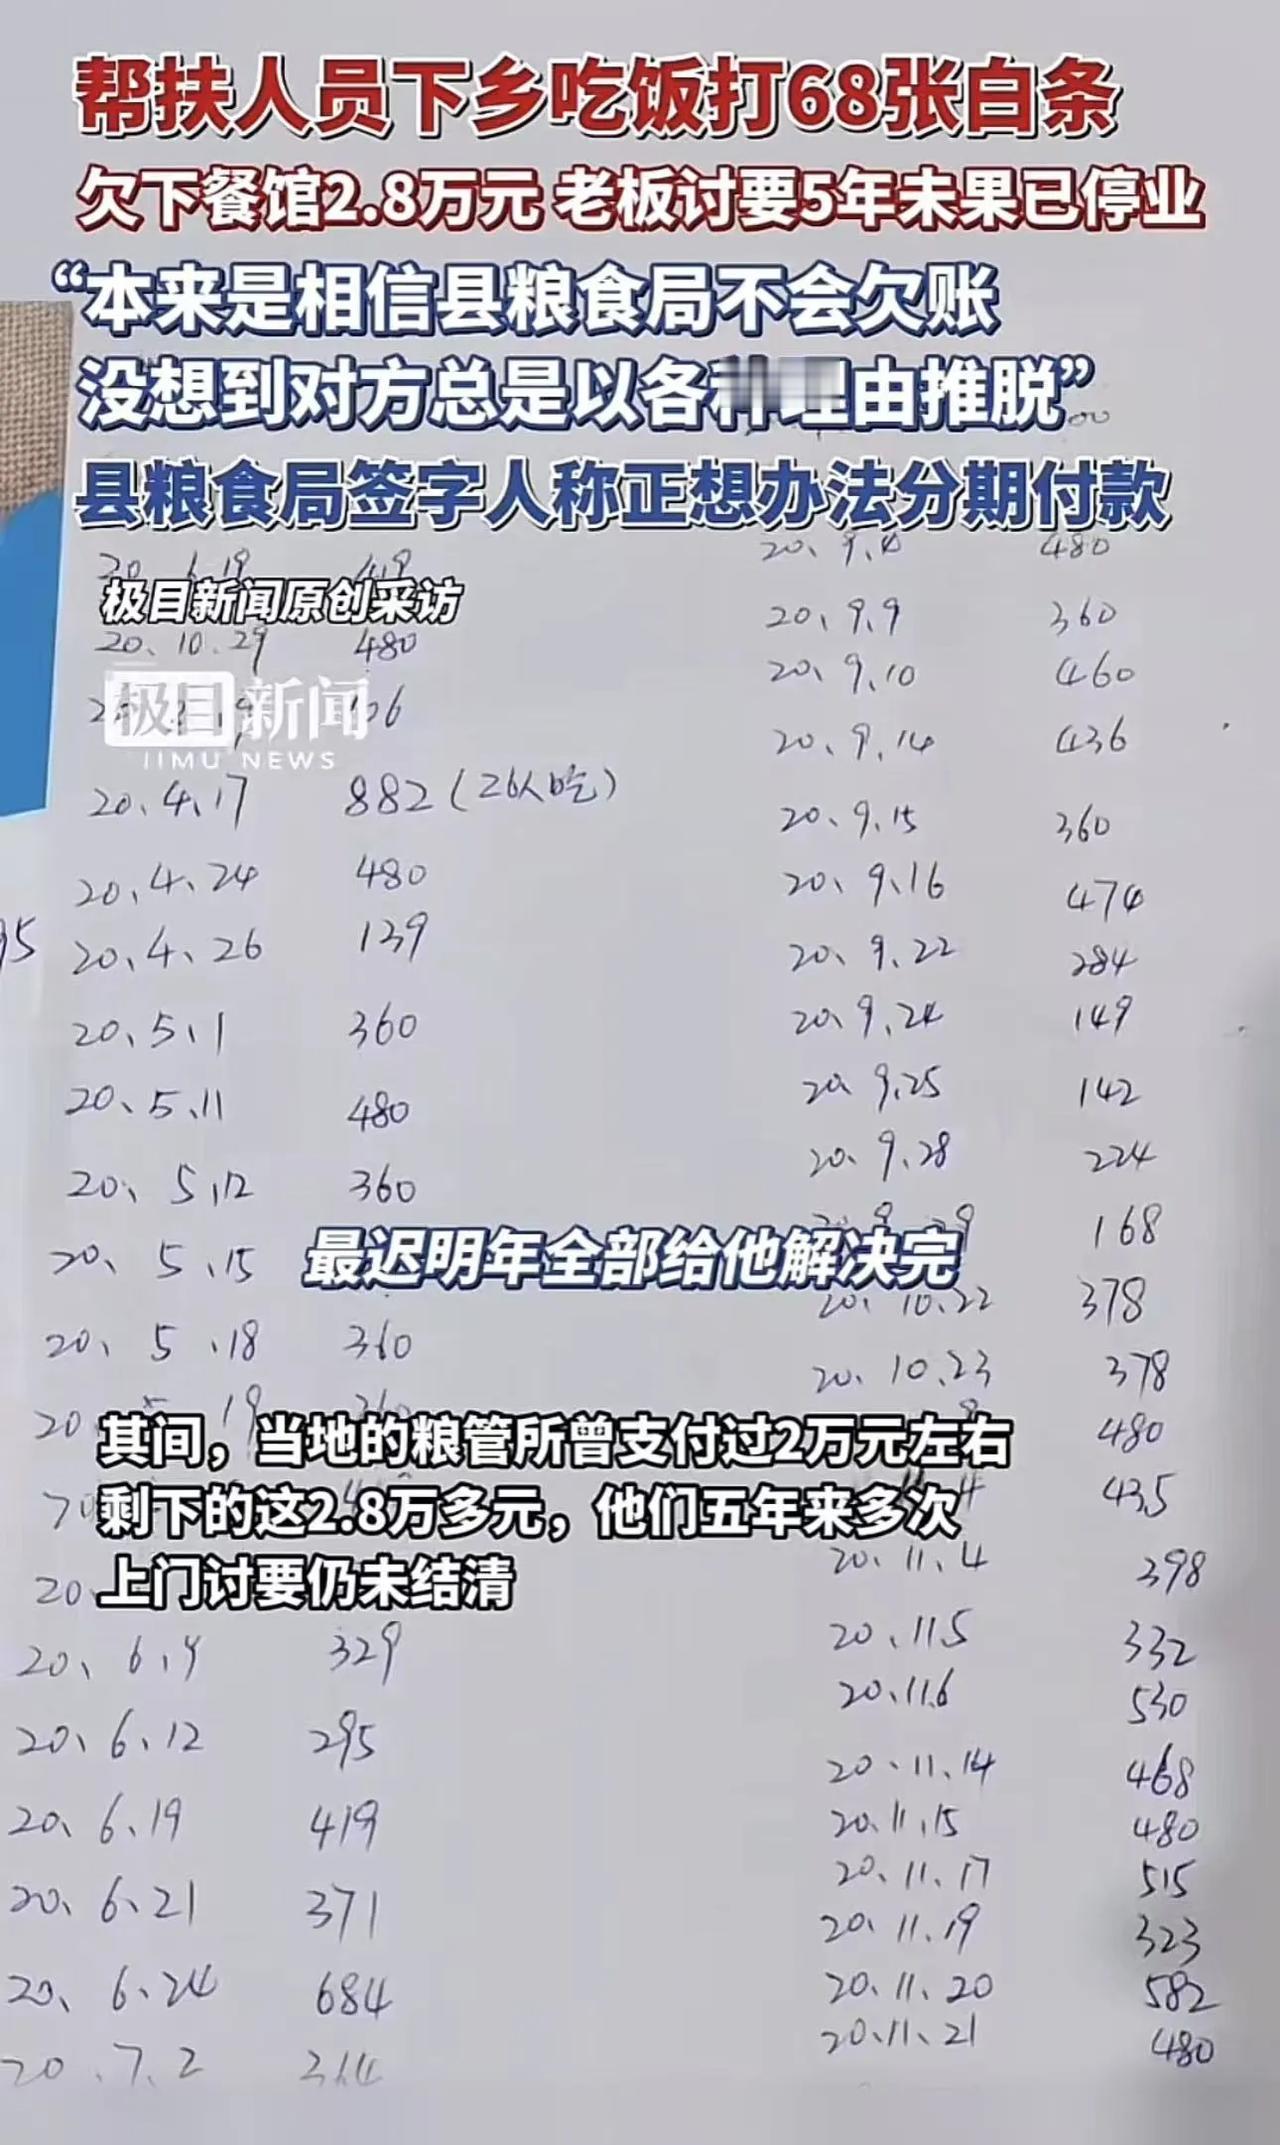 帮扶人员下乡吃饭打68张白条
欠下餐馆2.8万元 老板讨要5年未果已停业
“本来是相信县粮食局不会欠账
没想到对方总是以各种理由推脱”
县粮食局签字人称正想办法分期付款
20、6.19 419
极目新闻原创采访
20、10.29 480
极目新闻
JIMU NEWS
20、4、17 882(26人吃)
20、4、24 480
95
20、4、26 139
20、5、1 360
20、5、11 480
20、5、12 360
20、5、15
20、5、18 360
20 19 360
20、6、4 329
20、6、12 295
20、6、19 419
20、6、21 371
20、6、24 684
20、7、2
20、9、 480
20、9、9 360
20、9、10 460
20、9、14 436
20、9、15 360
20、9、16 474
20、9、22 284
20、9、24 149
20、9、25 142
20、9、28 224
168
20、10.22 378
20、10、23 378
480
435
20、11、4 398
20、11.5 332
20、11.6 530
20、11、14 468
20、11、15 480
20、11、17 515
20、11、19 323
20、11、20 582
20、11、21 480
最迟明年全部给他解决完
其间，当地的粮管所曾支付过2万元左右
剩下的这2.8万多元，他们五年来多次
上门讨要仍未结清